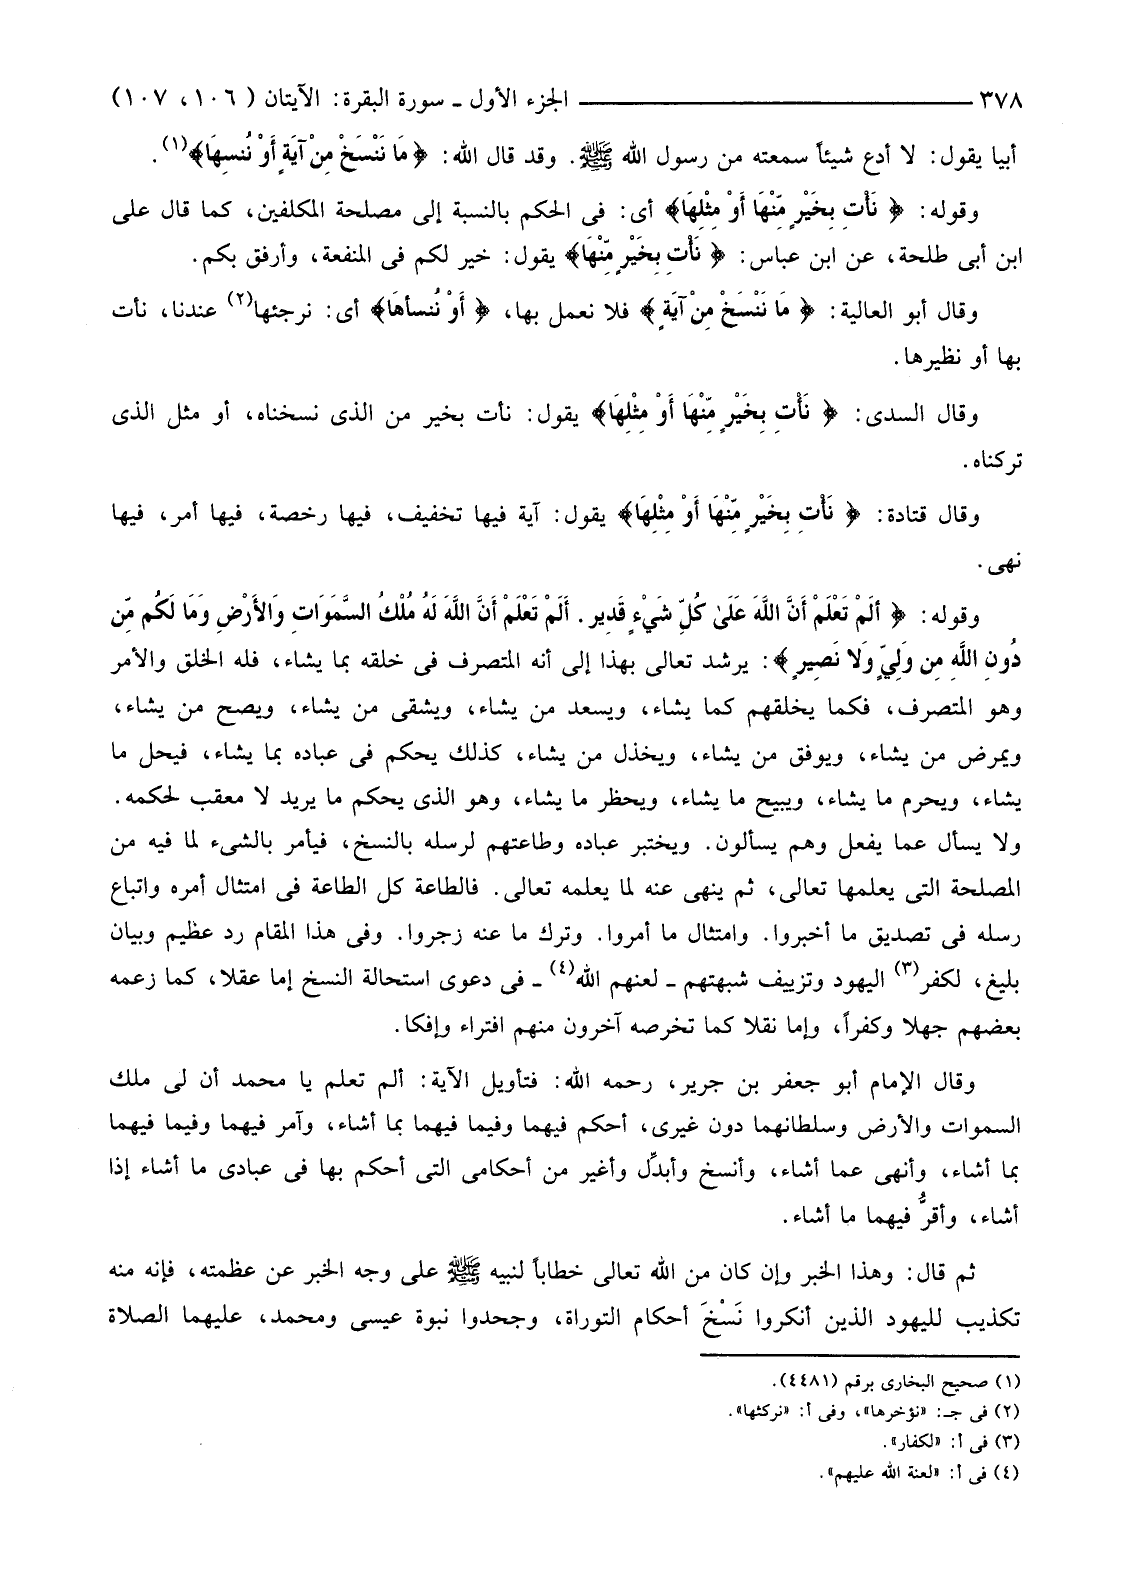 ٣٧٨ ــــــــــــــــــــ الجزء الأول ـ سورة البقرة: الآيتان ( ١٠٦، ١٠٧)
أبيا يقول: لا أدع شيئاً سمعته من رسول الله ﷺ. وقد قال الله: ﴿ مَا نَنْسَخْ مِنْ آيَةٍ أَوْ نُنسِهَا﴾(١).
وقوله: ﴿ نَأْتِ بِخَيْرٍ مِّنْهَا أَوْ مِثْلِهَا﴾ أى: فى الحكم بالنسبة إلى مصلحة المكلفين، كما قال على
ابن أبى طلحة، عن ابن عباس: ﴿ نَأْتِ بِخَيْرٍ مِّنْهَا﴾ يقول: خير لكم فى المنفعة، وأرفق بكم.
وقال أبو العالية: ﴿ مَا نَنْسَخْ مِنْ آيَةٍ ﴾ فلا نعمل بها، ﴿ أَوْ نُنسأهَا﴾ أى: نرجئها(٢) عندنا، نأت
بها أو نظيرها.
وقال السدى: ﴿ نَأْتِ بِخَيْرٍ مِّنْهَا أَوْ مِثْلِهَا﴾ يقول: نأت بخير من الذى نسخناه، أو مثل الذى
تركناه.
وقال قتادة: ﴿ نَأْتِ بِخَيْرٍ مِّنْهَا أَوْ مِثْلِهَا﴾ يقول: آية فيها تخفيف، فيها رخصة، فيها أمر، فيها
نهى.
وقوله: ﴿ أَلَمْ تَعْلَمْ أَنَّ اللَّهَ عَلَىٰ كُلِّ شَيْءٍ قَدِير . أَلَمْ تَعْلَمْ أَنَّ اللَّهَ لَهُ مُلْكُ السَّمَوَاتِ وَالأَرْضِ وَمَا لَكُم مِّن
دُونِ اللَّهِ مِن وَلِيٍّ وَلا نَصِيرٍ ﴾: يرشد تعالى بهذا إلى أنه المتصرف فى خلقه بما يشاء، فله الخلق والأمر
وهو المتصرف، فكما يخلقهم كما يشاء، ويسعد من يشاء، ويشقى من يشاء، ويصح من يشاء،
ويمرض من يشاء، ويوفق من يشاء، ويخذل من يشاء، كذلك يحكم فى عباده بما يشاء، فيحل ما
يشاء، ويحرم ما يشاء، ويبيح ما يشاء، ويحظر ما يشاء، وهو الذى يحكم ما يريد لا معقب لحكمه.
ولا يسأل عما يفعل وهم يسألون. ويختبر عباده وطاعتهم لرسله بالنسخ، فيأمر بالشىء لما فيه من
المصلحة التى يعلمها تعالى، ثم ينهى عنه لما يعلمه تعالى. فالطاعة كل الطاعة فى امتثال أمره واتباع
رسله فى تصديق ما أخبروا. وامتثال ما أمروا. وترك ما عنه زجروا. وفى هذا المقام رد عظيم وبيان
بليغ، لكفر(٣) اليهود وتزييف شبهتهم ـ لعنهم الله(٤) ـ فى دعوى استحالة النسخ إما عقلا، كما زعمه
بعضهم جهلا وكفراً، وإما نقلا كما تخرصه آخرون منهم افتراء وإفكا.
وقال الإمام أبو جعفر بن جرير، رحمه الله: فتأويل الآية: ألم تعلم يا محمد أن لى ملك
السموات والأرض وسلطانهما دون غيرى، أحكم فيهما وفيما فيهما بما أشاء، وآمر فيهما وفيما فيهما
بما أشاء، وأنهى عما أشاء، وأنسخ وأبدِّل وأغير من أحكامى التى أحكم بها فى عبادى ما أشاء إذا
أشاء، وأقرُّ فيهما ما أشاء.
ثم قال: وهذا الخبر وإن كان من الله تعالى خطاباً لنبيه ﷺ على وجه الخبر عن عظمته، فإنه منه
تكذيب لليهود الذين أنكروا نَسْخَ أحكام التوراة، وجحدوا نبوة عيسى ومحمد، عليهما الصلاة
(١) صحيح البخارى برقم (٤٤٨١).
(٢) فى جـ: «نؤخرها»، وفى أ: «نركثها».
(٣) فى أ: «لكفار».
(٤) فى أ: «لعنة الله عليهم».